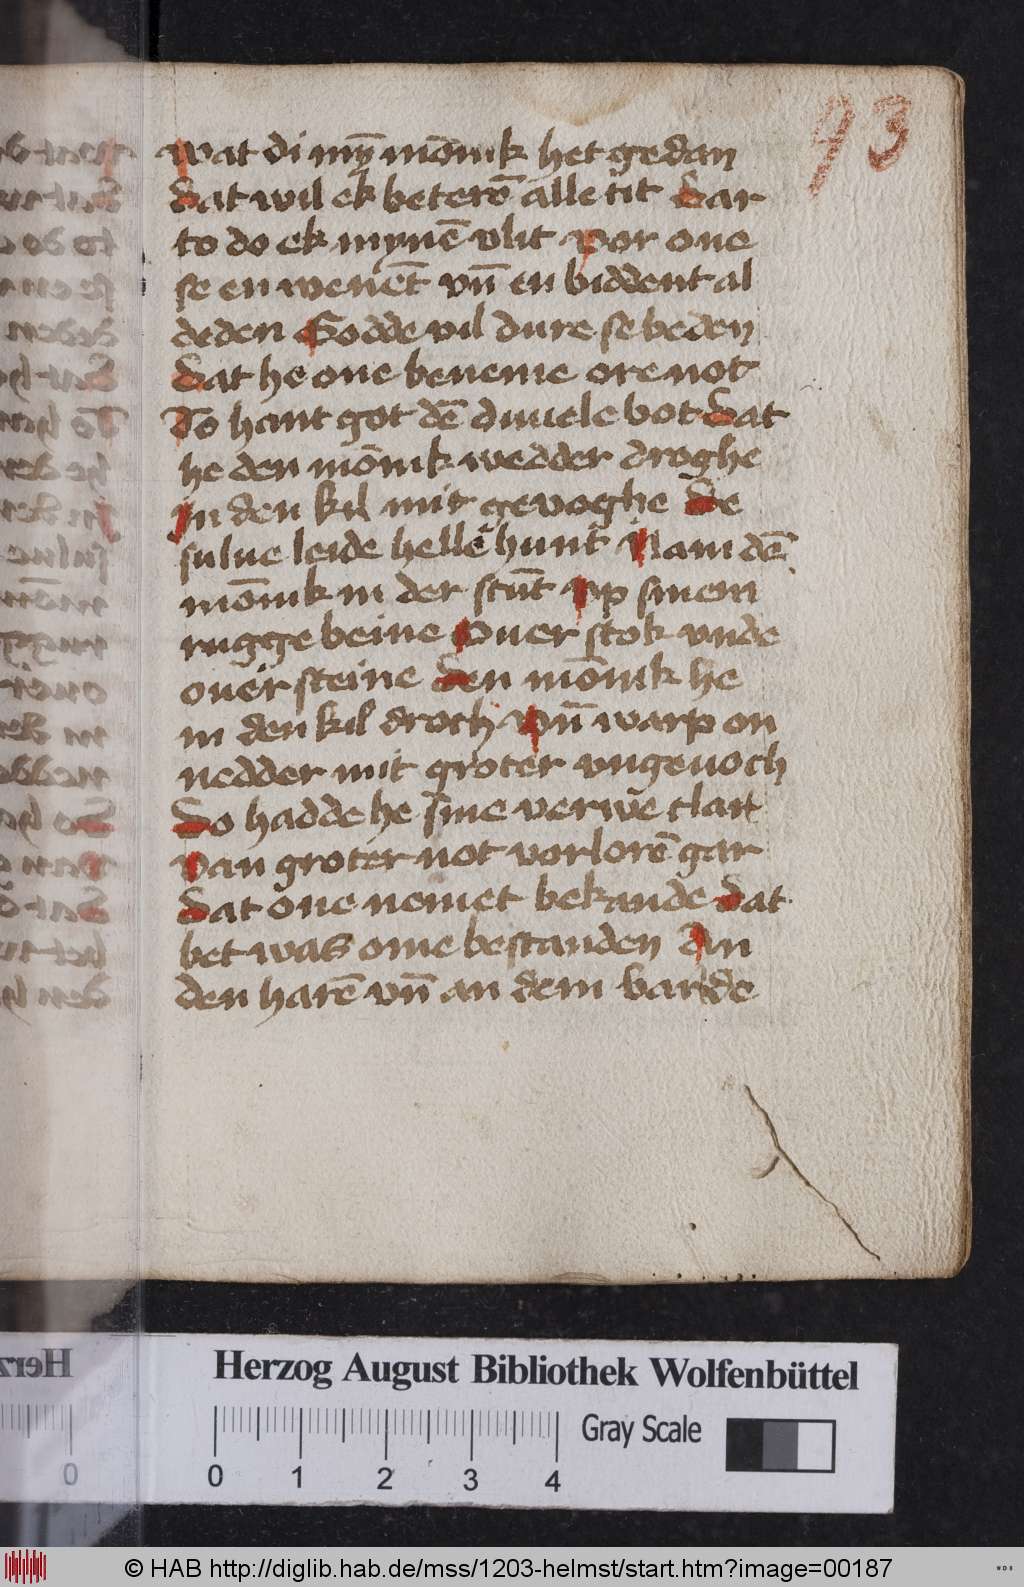 93
wat di myn̄ mōnik het gedan
Dat wil ek beterē alle tit Dar
to do ek mynē vlit Vor one
se en wenēt vn̄ en biddent al
deden Godde vil dure se beden
Dat he one beneme ore not
To hant got dē duuele bot Dat
he den mōnik wedder droghe
In den kil mit gevoghe De
sulue leide helle hunt Nam dē
mōnik in der stūt Vp sinem
rugge beine Ouer stok vnde
ouer steine Den mōnik he
in den kil droch Vn̄ warp on
nedder mit groter vngevoch
Do hadde he sine verwe clar
Van groter not vorlorē gar
Dat one nemet bekande Dat
bet was ome bestanden An
den harē vn̄ an dem barde
Herzog August Bibliothek Wolfenbüttel
Gray Scale
0 1 2 3 4
© HAB http://diglib.hab.de/mss/1203-helmst/start.htm?image=00187